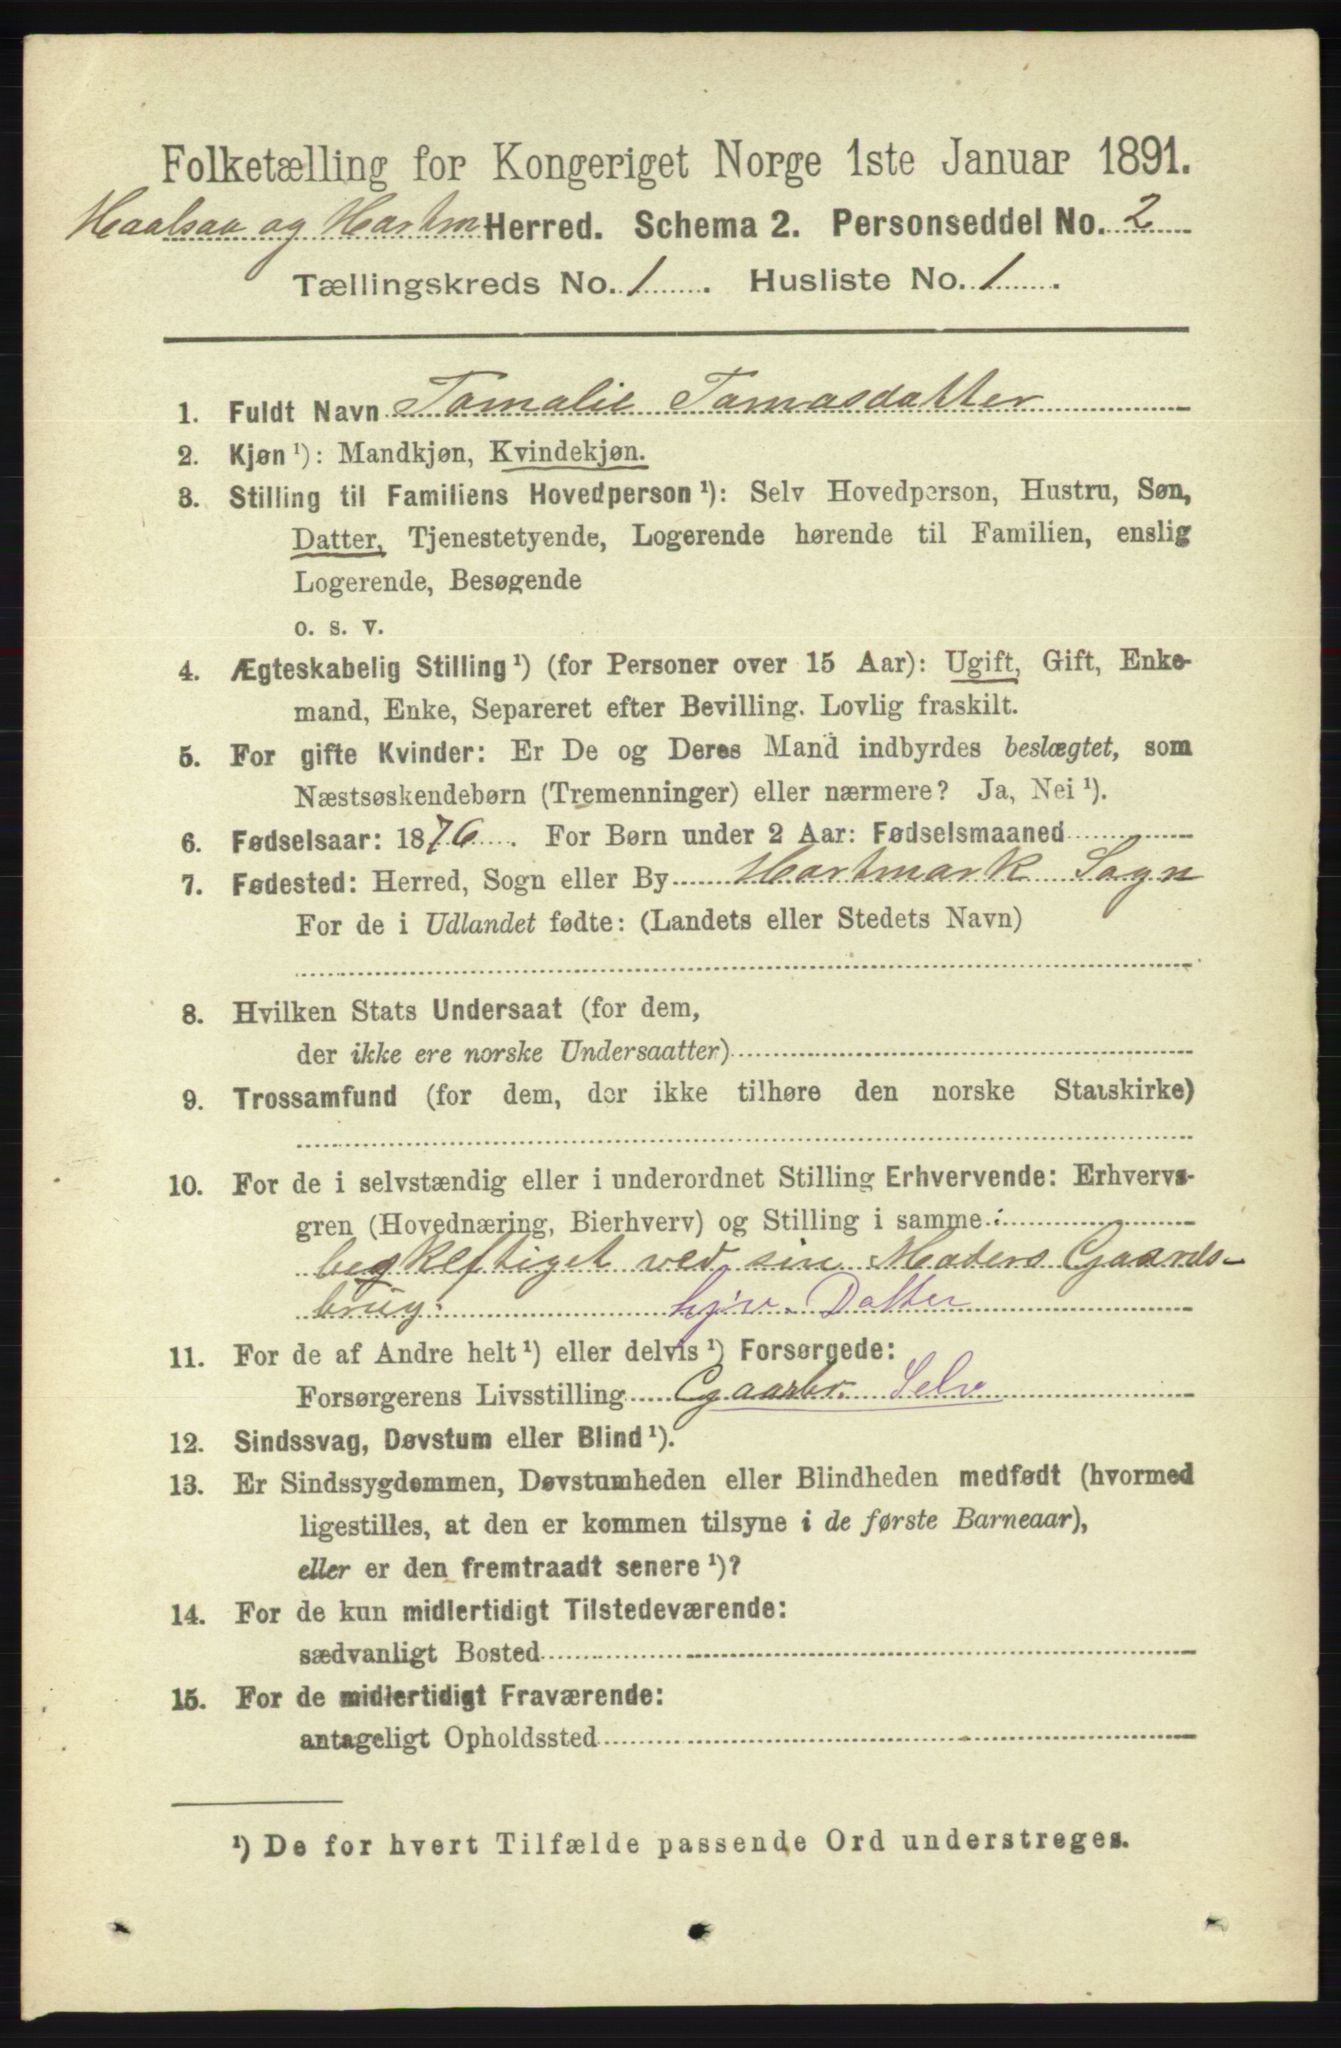 Folketælling for Kongeriget Norge 1ste Januar 1891.
Haalsaa og Hartm Herred. Schema 2. Personseddel No. 2
Tællingskreds No. 1. Husliste No. 1.
1. Fuldt Navn Tomalie Tomasdatter
2. Kjøn ¹): Mandkjøn, Kvindekjøn.
3. Stilling til Familiens Hovedperson ¹): Selv Hovedperson, Hustru, Søn,
Datter, Tjenestetyende, Logerende hørende til Familien, enslig
Logerende, Besøgende
o. s. v.
4. Ægteskabelig Stilling ¹) (for Personer over 15 Aar): Ugift, Gift, Enke-
mand, Enke, Separeret efter Bevilling. Lovlig fraskilt.
5. For gifte Kvinder: Er De og Deres Mand indbyrdes beslægtet, som
Næstsøskendebørn (Tremenninger) eller nærmere? Ja, Nei ¹).
6. Fødselsaar: 1876. For Børn under 2 Aar: Fødselsmaaned
7. Fødested: Herred, Sogn eller By Hartmark Sogn
For de i Udlandet fødte: (Landets eller Stedets Navn)
8. Hvilken Stats Undersaat (for dem,
der ikke ere norske Undersaatter)
9. Trossamfund (for dem, der ikke tilhøre den norske Statskirke)
10. For de i selvstændig eller i underordnet Stilling Erhvervende: Erhvervs-
gren (Hovednæring, Bierhverv) og Stilling i samme:
beskeftiget ved sin Moders Gaards-
brug. hjv. Datter
11. For de af Andre helt ¹) eller delvis ¹) Forsørgede:
Forsørgerens Livsstilling Gaarbr. Selv
12. Sindssvag, Døvstum eller Blind ¹).
13. Er Sindssygdommen, Døvstumheden eller Blindheden medfødt (hvormed
ligestilles, at den er kommen tilsyne i de første Barneaar),
eller er den fremtraadt senere ¹)?
14. For de kun midlertidigt Tilstedeværende:
sædvanligt Bosted
15. For de midlertidigt Fraværende:
antageligt Opholdssted
¹) De for hvert Tilfælde passende Ord understreges.